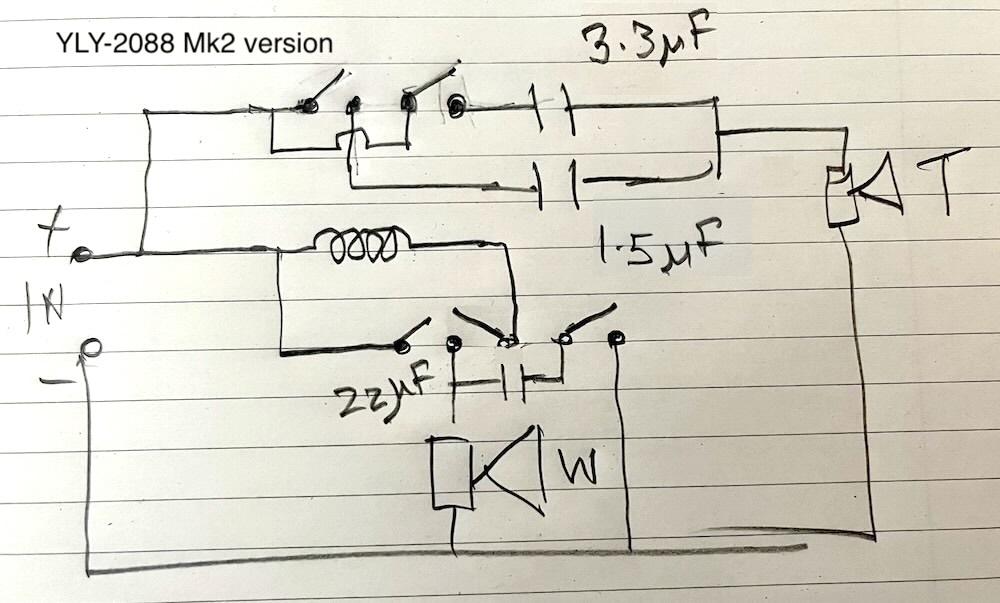 YLY-2088 Mk2 version
3.3μF
T
+
1.5μF
IN
-
22μF
W